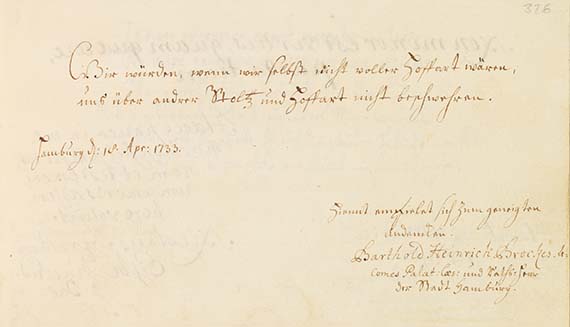 376
Wir würden, wenn wir selbst nicht voller Hoffart wären,
uns über andrer Stoltz und Hoffart nicht beschwehren.
Hamburg d: 18. Apr: 1733.
Hiemit empfielet sich zum geneigten
Andencken.
Barthold Heinrich Brockes.
comes Palat. Caes: und Rathsherr
der Stadt Hamburg.